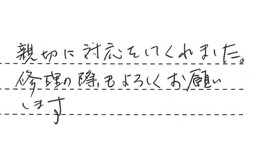 親切に対応をしてくれました。
修理の際もよろしくお願い
します